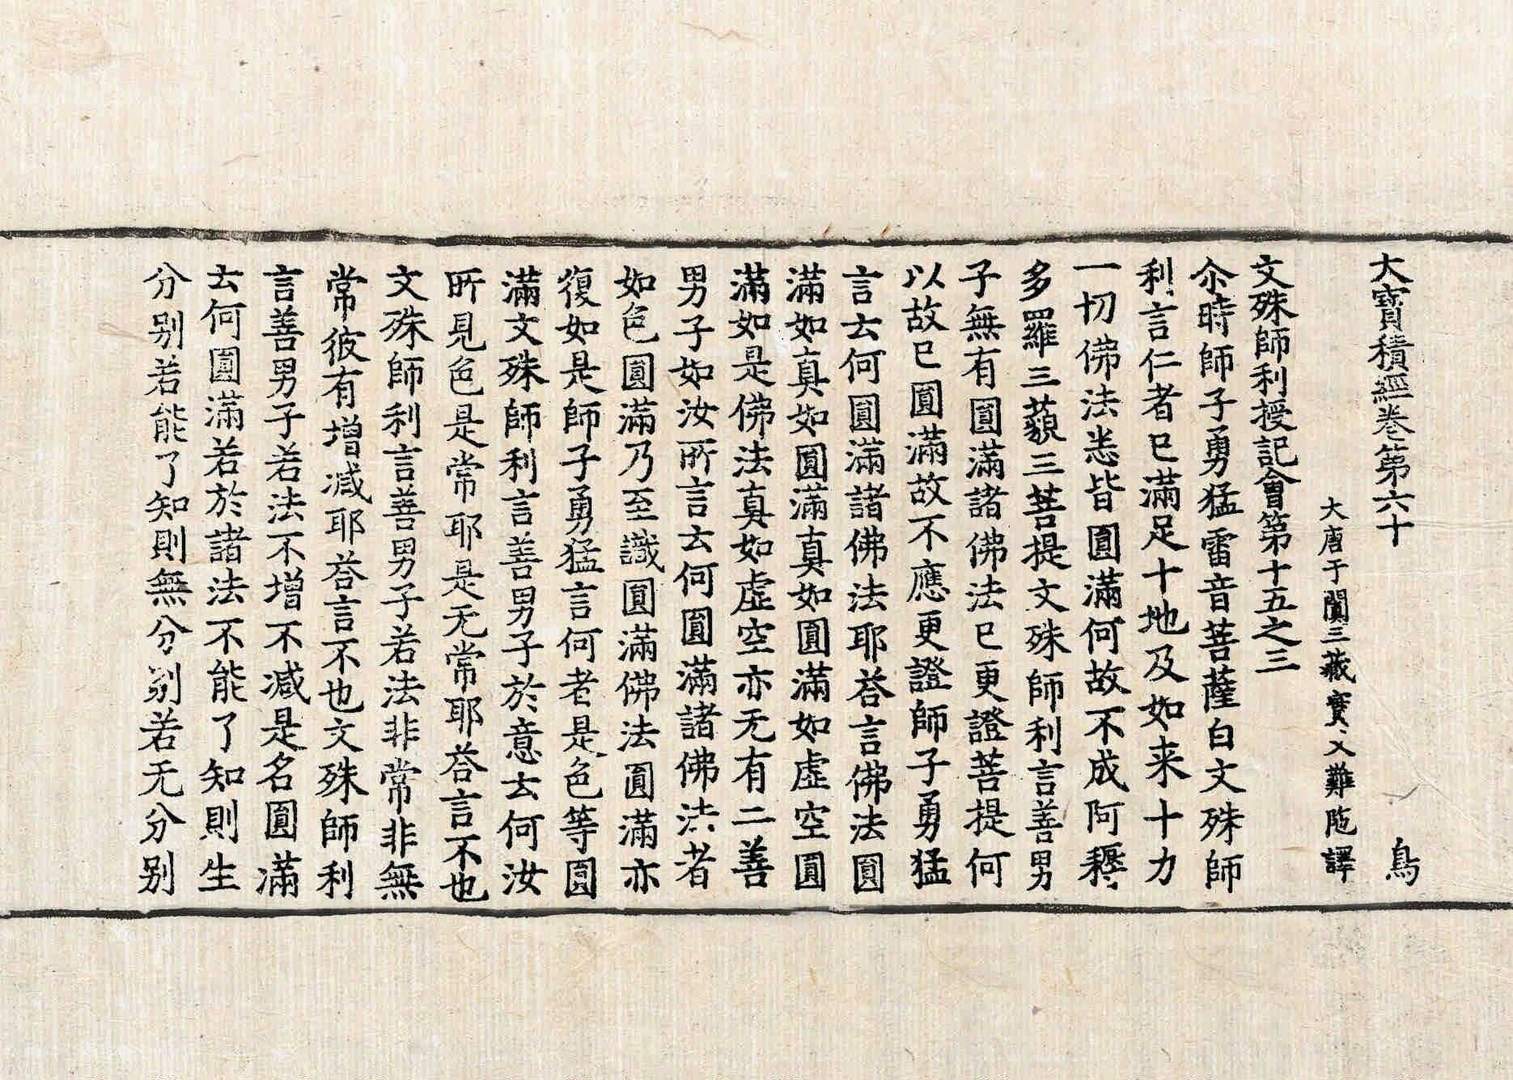 大寶積經卷第六十 鳥
大唐于闐三藏實叉難陁譯
文殊師利授記會第十五之三
尒時師子勇猛雷音菩薩白文殊師
利言仁者已滿足十地及如来十力
一切佛法悉皆圓滿何故不成阿耨
多羅三藐三菩提文殊師利言善男
子無有圓滿諸佛法已更證菩提何
以故已圓滿故不應更證師子勇猛
言云何圓滿諸佛法耶荅言佛法圓
滿如真如圓滿真如圓滿如虛空圓
滿如是佛法真如虛空亦无有二善
男子如汝所言云何圓滿諸佛法者
如色圓滿乃至識圓滿佛法圓滿亦
復如是師子勇猛言何者是色等圓
滿文殊師利言善男子於意云何汝
所見色是常耶是无常耶荅言不也
文殊師利言善男子若法非常非無
常彼有增减耶荅言不也文殊師利
言善男子若法不增不减是名圓滿
云何圓滿若於諸法不能了知則生
分别若能了知則無分别若无分别